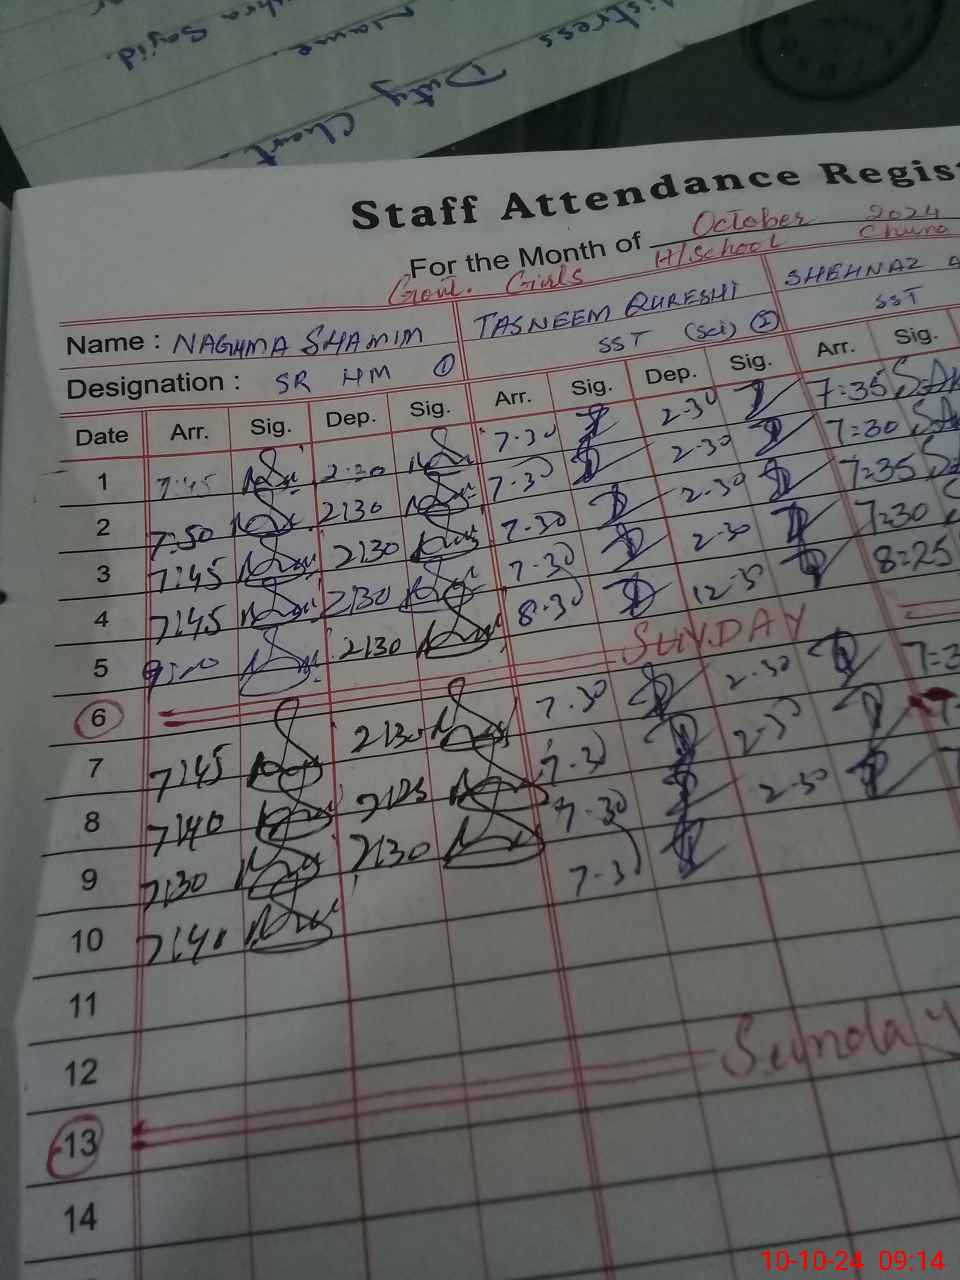 Sajid.
Name.
stress
Duty Chart
Staff Attendance Regis
For the Month of October 2024
Govt. Girls H/School Chuna
Name : NAGHMA SHAMIM TASNEEM QURESHI SHEHNAZ A
Designation : SR HM 1 SST (Sci) 2 SST
Date Arr. Sig. Dep. Sig. Arr. Sig. Dep. Sig. Arr. Sig.
1 7:45 2:30 7-30 2-30 7=35
2 7:50 2:30 7-30 2-30 7=30
3 7:45 2:30 7-30 2-30 7=35
4 7:45 2:30 7-30 2-30 7=30
5 2:30 8-30 12-30 8=25
6 SUNDAY
7 7:45 2:30 7.30 2-30 7=3
8 7:40 7-30 2-30 7
9 7:30 2:30 7-30 2-30 7
10 7:40 7-30
11
12
13 Sunday
14
10-10-24 09:14